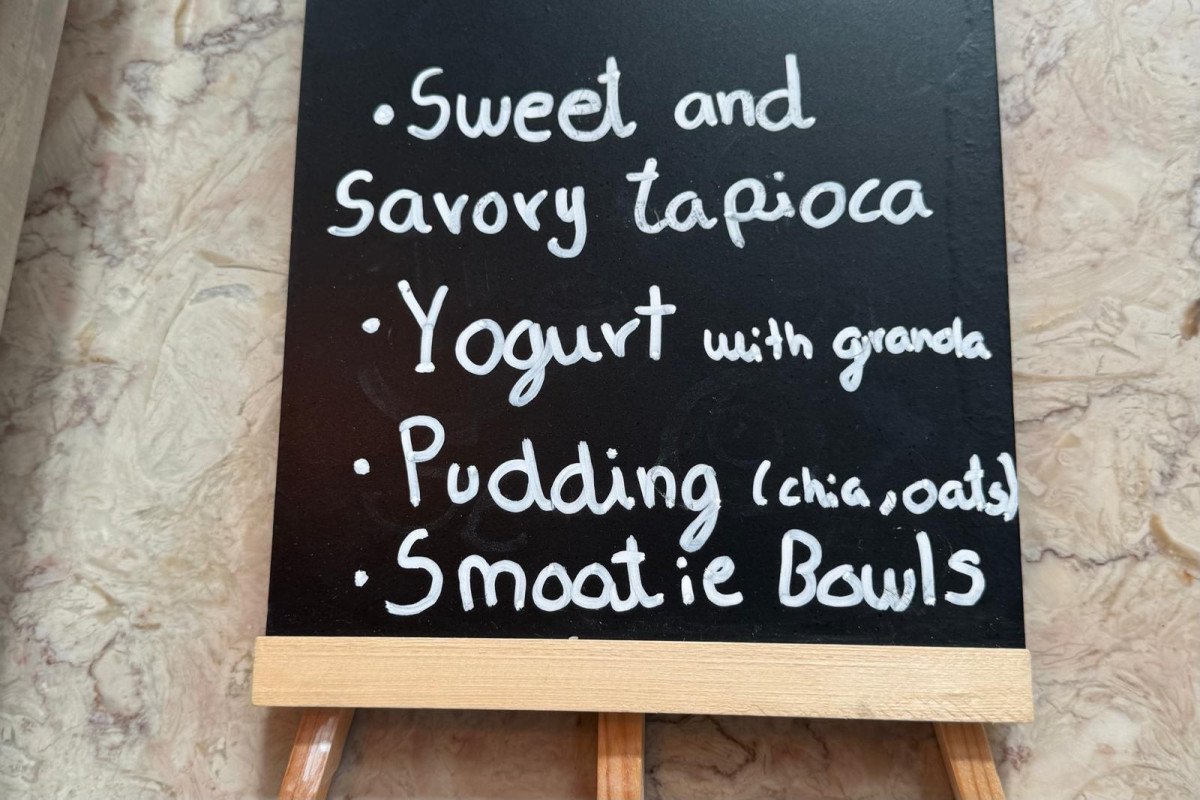 • Sweet and
Savory tapioca
• Yogurt with granola
• Pudding (chia, oats)
• Smootie Bowls